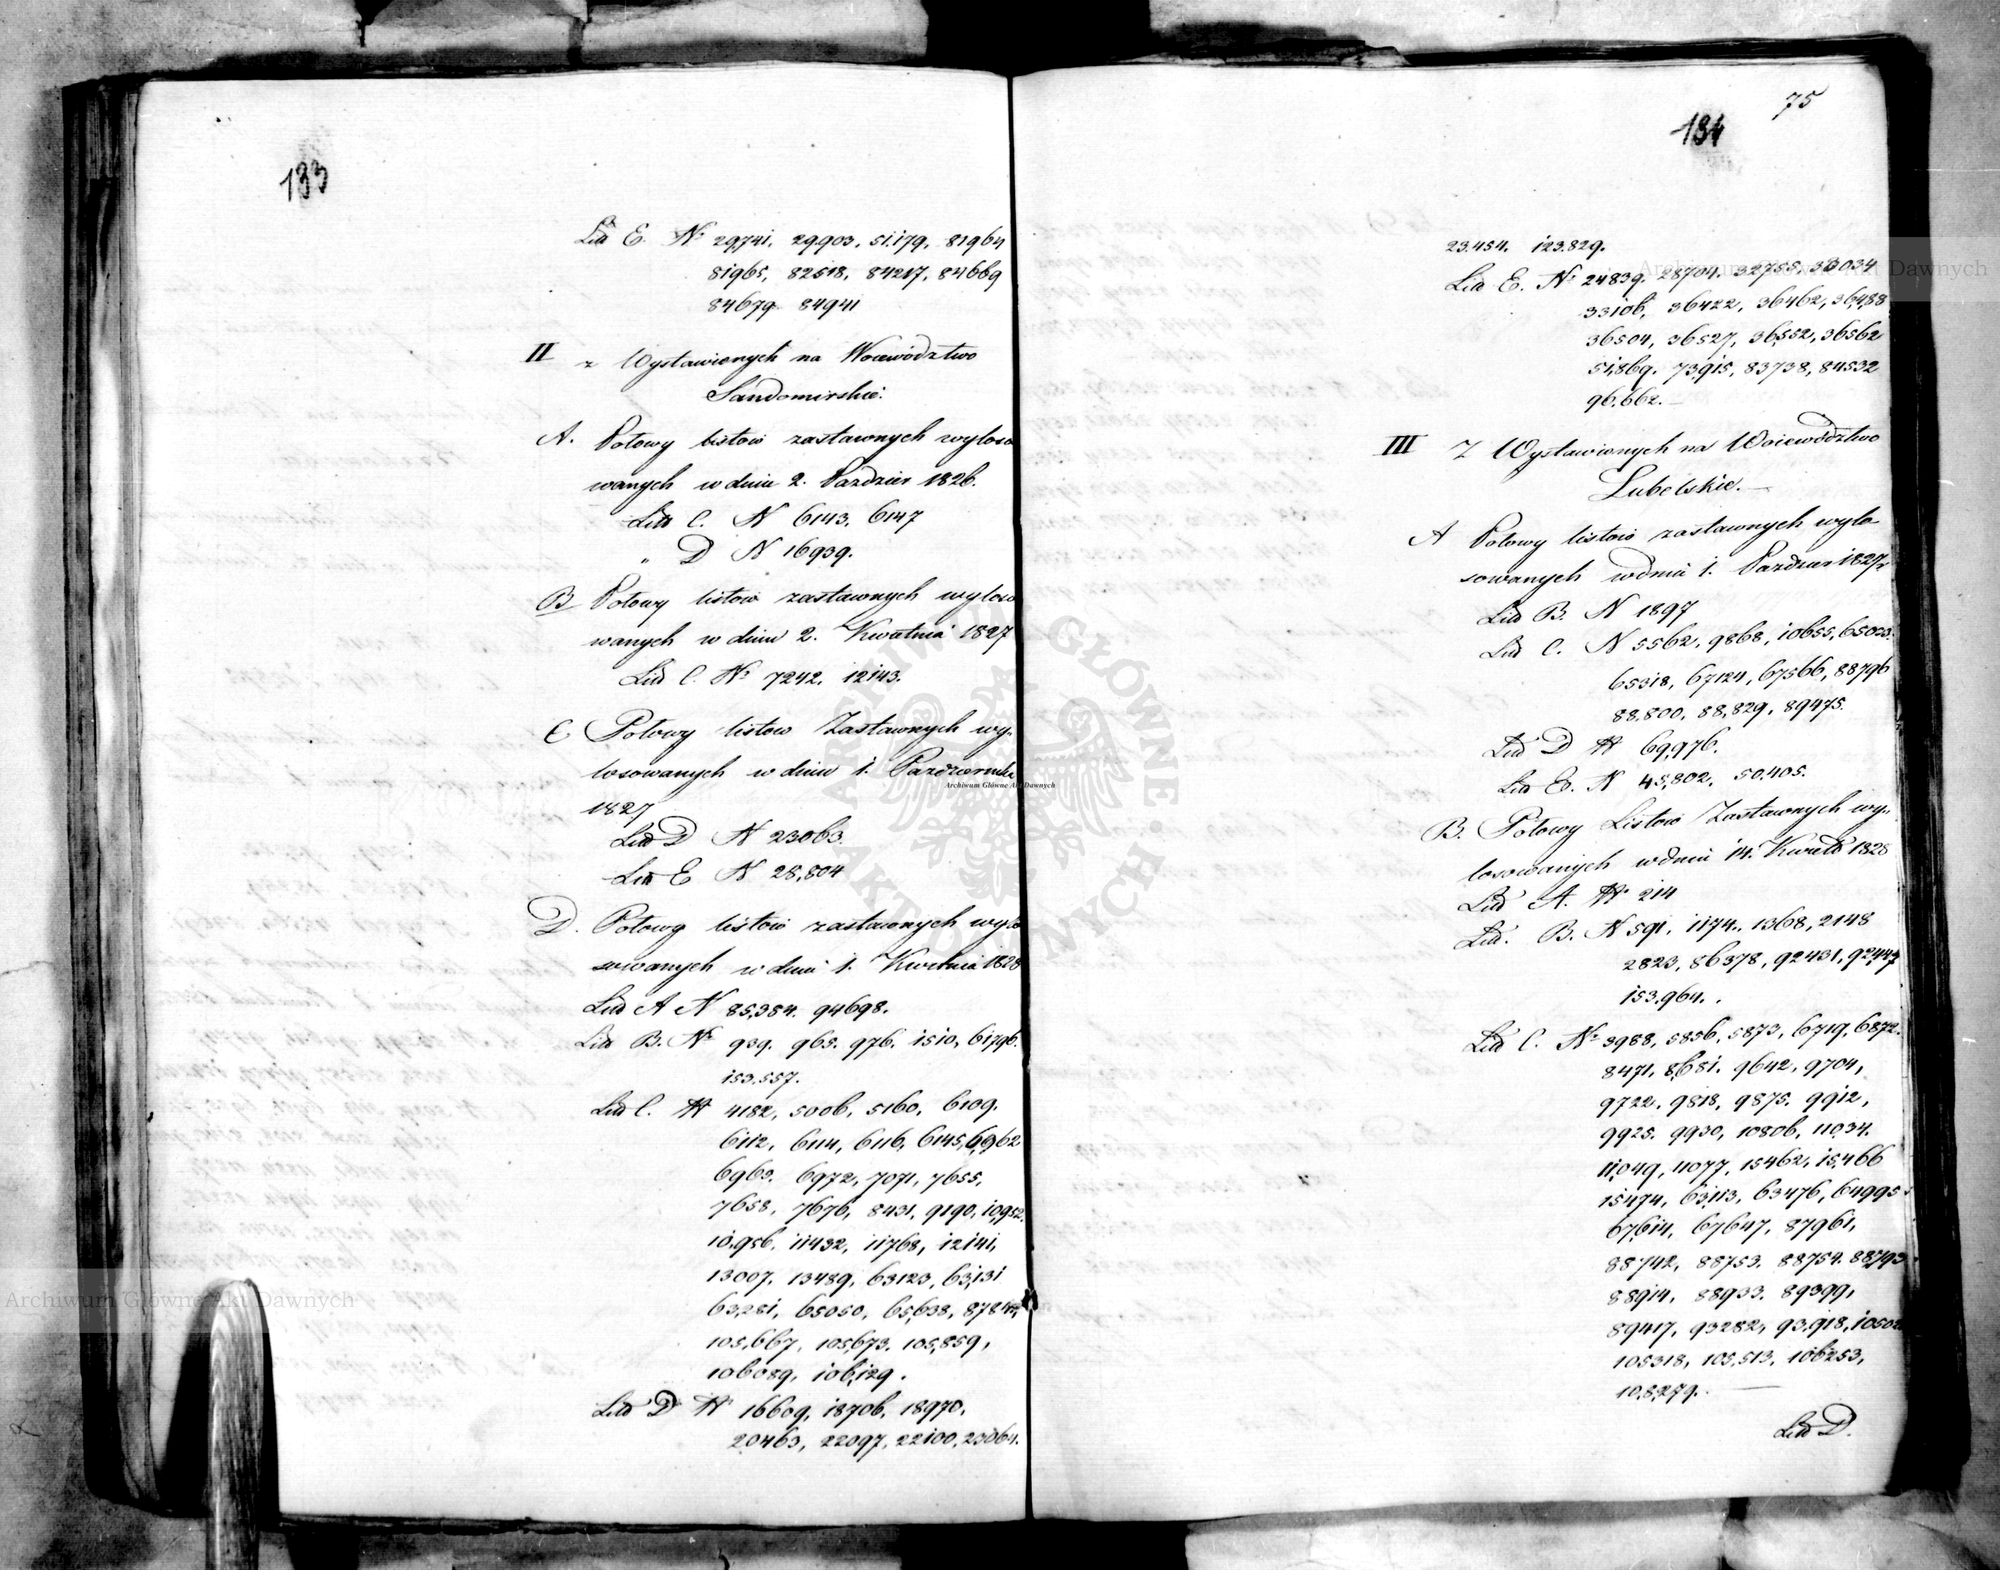 133
Litt E. Nº 29,741. 29,903, 51,179, 81964
81965, 82518, 84217, 84669
84679 84941
II z Wystawionych na Woiewództwo
Sandomirskie:
A. Połowy listów zastawnych wyloso
wanych w dniu 2. Paździer 1826.
Litt C. N 6143. 6147
" D N 16939.
B Połowy listów zastawnych wyloso
wanych w dniu 2. Kwietnia 1827
Litt C. Nº 7242. 12143.
C Połowy listow Zastawnych wy-
losowanych w dniu 1. Października
1827
Litt D N 23063.
Litt E N 28,804
D. Połowy listów zastawnych wylo
sowanych w dniu 1. Kwietnia 1828
Litt A N 85,384. 94698.
Litt B. Nº 939. 965. 976. 1510, 61796.
153.557.
Litt C. N 4182, 5006, 5160, 6109.
6112, 6114, 6116, 6145, 6962
6963. 6972, 7071, 7655,
7658, 7676, 8431, 9190, 10,952.
10.956. 11432, 11768, 12141,
13007. 13489, 63123, 63,131
63,281, 65050, 65,638, 8784
105,667, 105,673. 105,859,
106089, 106,129.
Litt D N 16609, 18706, 18970,
20463, 22097, 22100, 23064.
75
134
23.454. 123.829.
Litt E. Nº 24839. 28704. 32755. 33034
33106, 36422, 36462, 36,488
36504, 36527, 36,552, 36562
51,869. 73,915, 83738, 84532
96,662.
III Z Wystawionych na Woiewództwo
Lubelskie.
A Połowy listów zastawnych wylo-
sowanych wdniu 1. Paździer 1827
Litt B. N 1897
Litt C. N 5562, 9868, 10655, 65023.
65318, 67124, 67566, 88796
88,800, 88,829, 89475.
Litt D N 69,976.
Litt E. N 45,802, 50,405.
B. Połowy Listów Zastawnych wy-
losowanych wdniu 14. Kwiet 1828
Litt A. Nº 214
Litt. B. N 591, 1174, 1368, 2148
2823, 86378, 92431, 92,447
153,964.
Litt C. Nº 3988, 5856, 5873, 6719, 6872.
8471, 8,681. 9642, 9704,
9722. 9818, 9875. 9912,
9925. 9930, 10806, 11034.
11,049, 11077, 15462, 15,466
15474, 63,113, 63476, 64995
67,614, 67647, 87961,
88742, 88753. 88754. 88,793
88914, 88933. 89399,
89417, 93282, 93,918, 1050
105318, 105,513. 106253,
108,279.
Litt D.
Archiwum Główne Akt Dawnych
ARCHIWUM GŁÓWNE AKT DAWNYCH
Archiwum Główne Akt Dawnych
Archiwum Główne Akt Dawnych